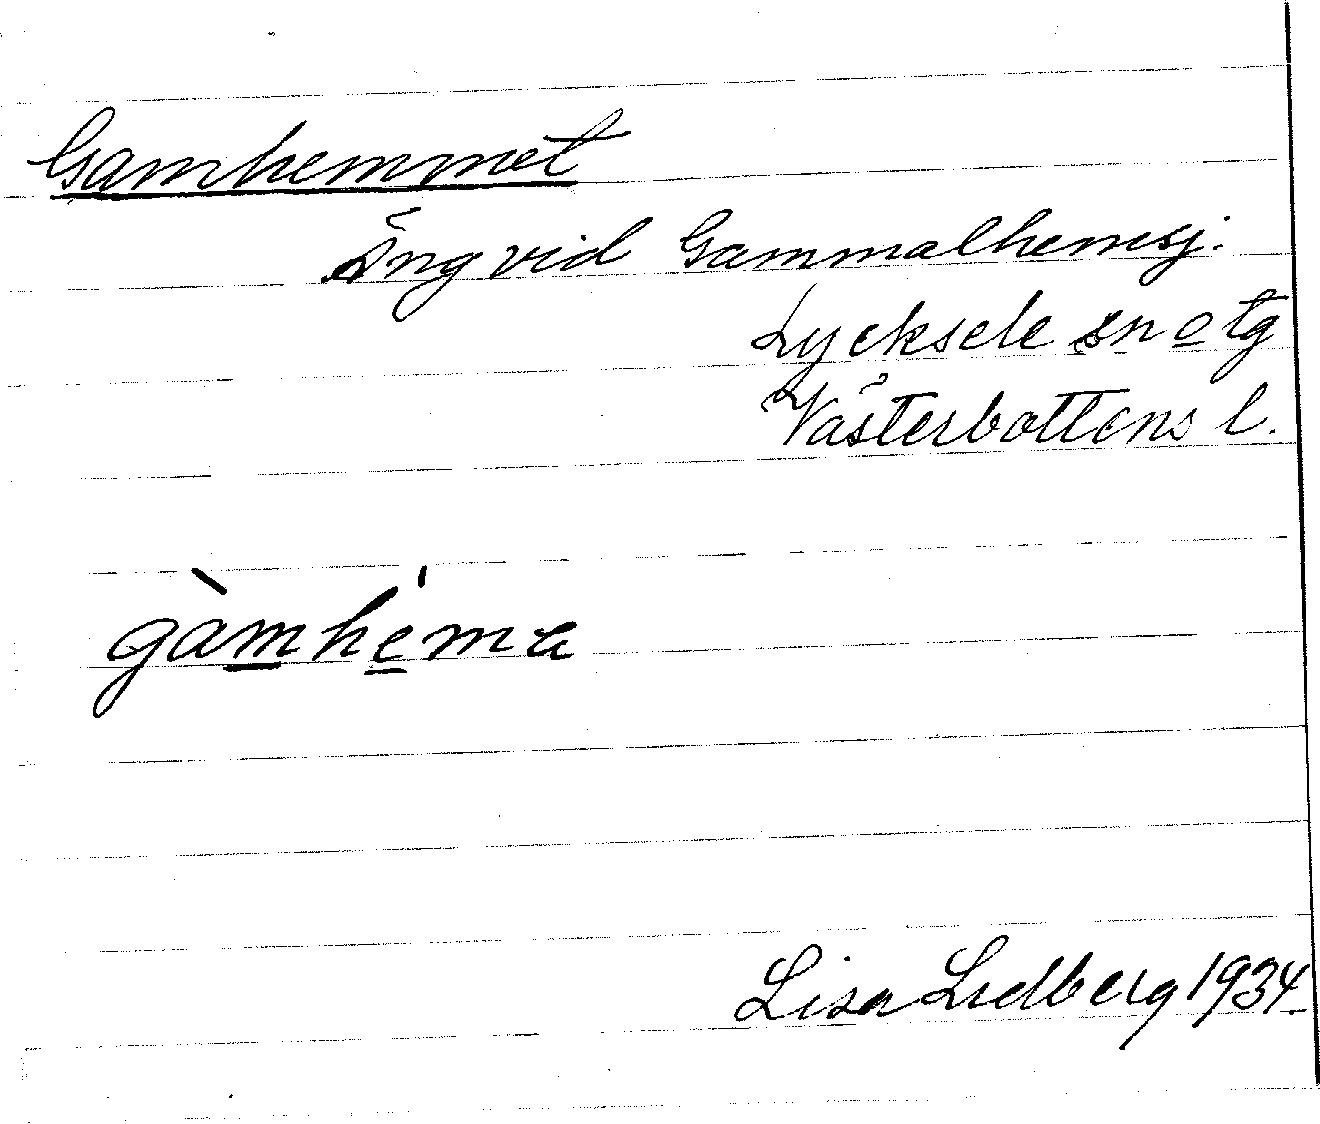 Gamhemmet
Äng vid Gammalhemsj.
Lycksele sn o tg
Västerbottens l.
gàmhéma
Lisa Lidberg 1934